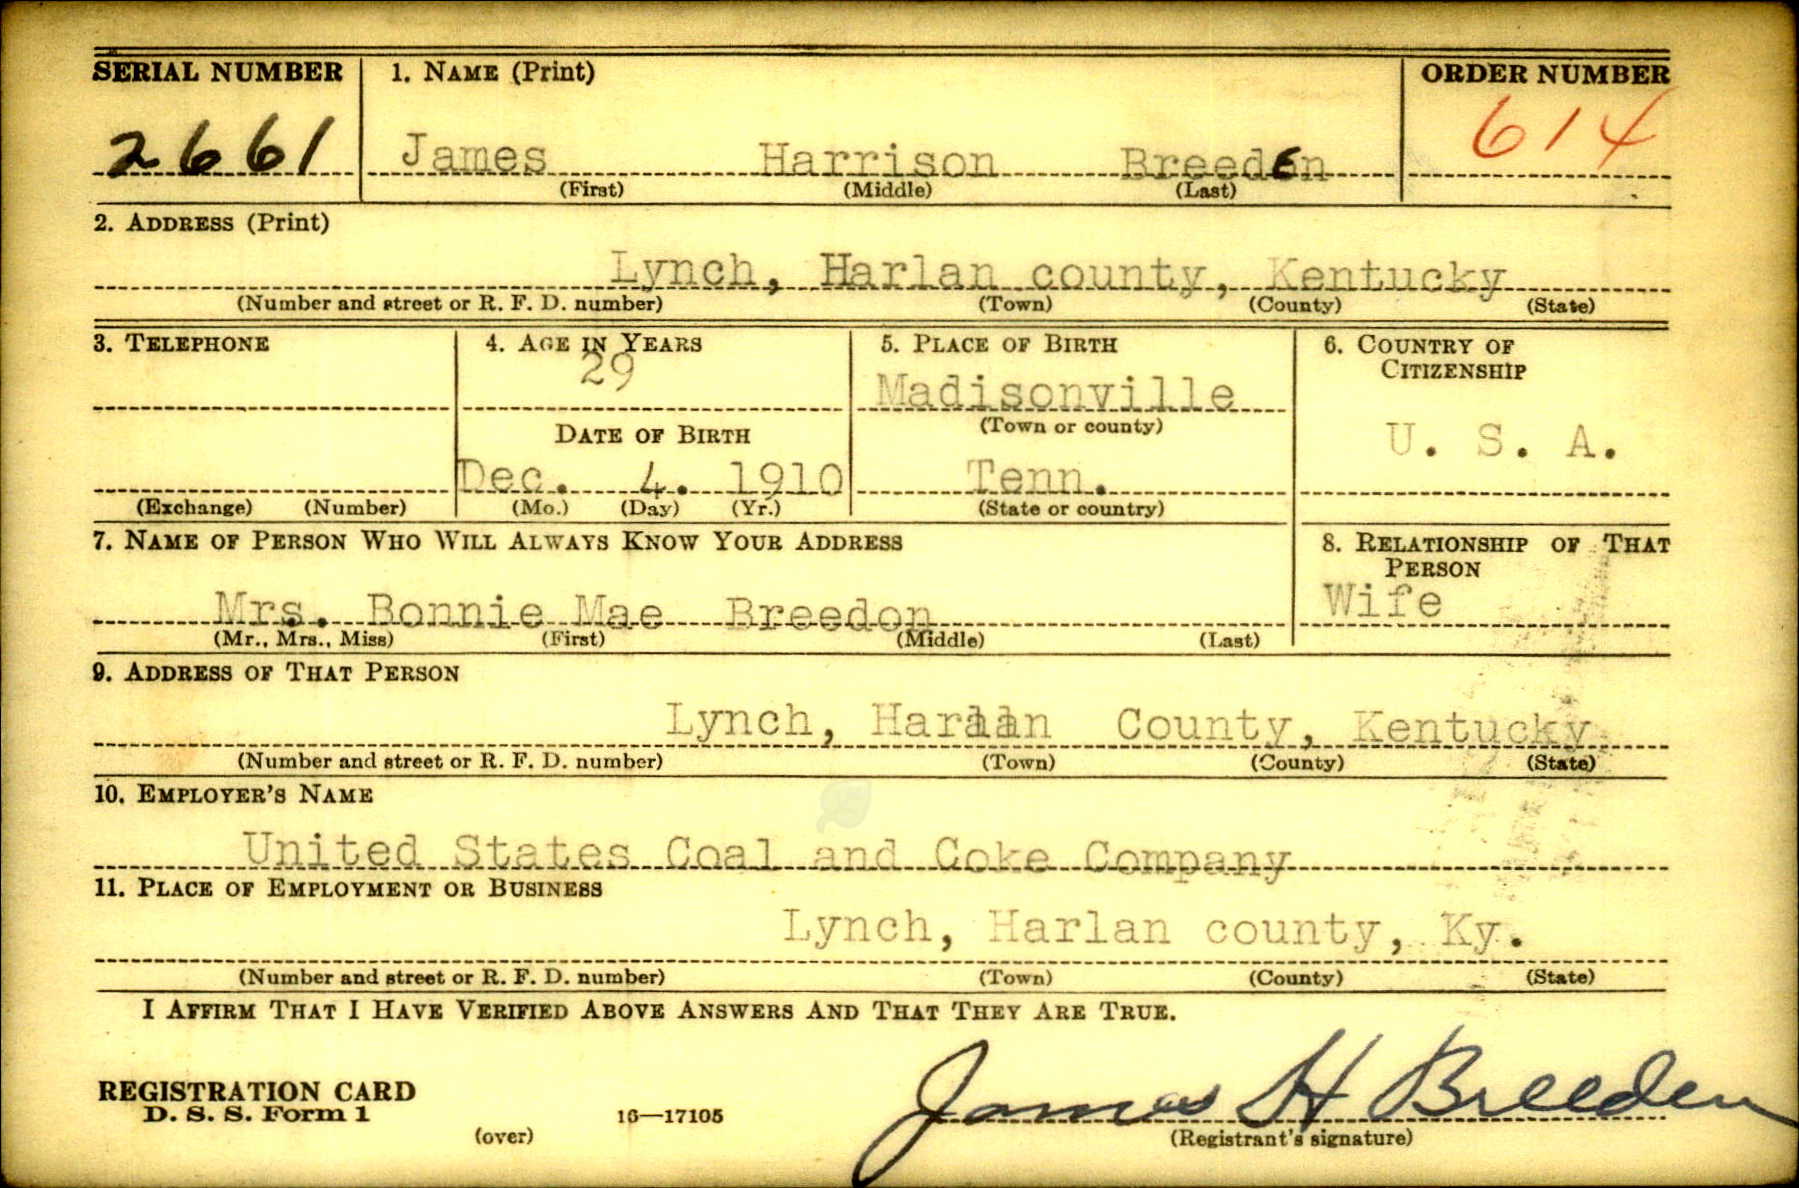 SERIAL NUMBER 1. NAME (Print) ORDER NUMBER
2661 James Harrison Breeden 614
(First) (Middle) (Last)
2. ADDRESS (Print)
Lynch, Harlan county, Kentucky
(Number and street or R. F. D. number) (Town) (County) (State)
3. TELEPHONE 4. AGE IN YEARS 5. PLACE OF BIRTH 6. COUNTRY OF
CITIZENSHIP
29 Madisonville
(Town or county)
DATE OF BIRTH U. S. A.
Dec. 4. 1910 Tenn.
(Exchange) (Number) (Mo.) (Day) (Yr.) (State or country)
7. NAME OF PERSON WHO WILL ALWAYS KNOW YOUR ADDRESS 8. RELATIONSHIP OF THAT
PERSON
Mrs. Bonnie Mae Breedon Wife
(Mr., Mrs., Miss) (First) (Middle) (Last)
9. ADDRESS OF THAT PERSON
Lynch, Harlan County, Kentucky
(Number and street or R. F. D. number) (Town) (County) (State)
10. EMPLOYER'S NAME
United States Coal and Coke Company
11. PLACE OF EMPLOYMENT OR BUSINESS
Lynch, Harlan county, Ky.
(Number and street or R. F. D. number) (Town) (County) (State)
I AFFIRM THAT I HAVE VERIFIED ABOVE ANSWERS AND THAT THEY ARE TRUE.
REGISTRATION CARD
D. S. S. Form 1 16—17105 James H Breeden
(over) (Registrant's signature)